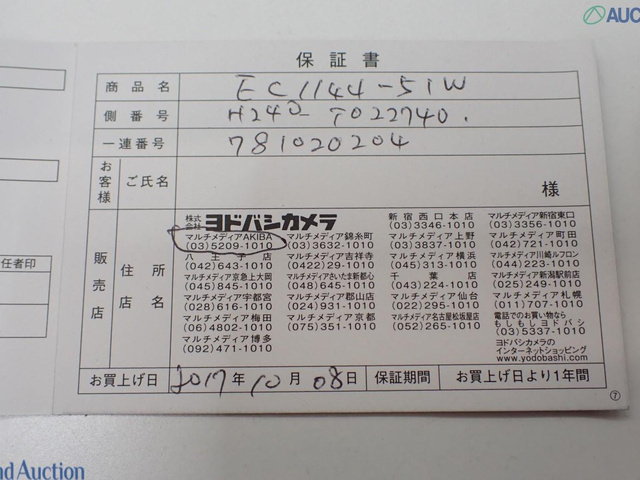 AUC
保証書
商品名 EC1144-51W
側番号 H240-T022740.
一連番号 781020204
お客様 ご氏名 様
販売店 住所 店名
株式会社 ヨドバシカメラ
マルチメディアAKIBA
(03)5209-1010
八王子店
(042)643-1010
マルチメディア京急上大岡
(045)845-1010
マルチメディア宇都宮
(028)616-1010
マルチメディア梅田
(06)4802-1010
マルチメディア博多
(092)471-1010
マルチメディア錦糸町
(03)3632-1010
マルチメディア吉祥寺
(0422)29-1010
マルチメディアさいたま新都心
(048)645-1010
マルチメディア郡山店
(024)931-1010
マルチメディア京都
(075)351-1010
新宿西口本店
(03)3346-1010
マルチメディア上野
(03)3837-1010
マルチメディア横浜
(045)313-1010
千葉店
(043)224-1010
マルチメディア仙台
(022)295-1010
マルチメディア名古屋松坂屋店
(052)265-1010
マルチメディア新宿東口
(03)3356-1010
マルチメディア町田
(042)721-1010
マルチメディア川崎ルフロン
(044)223-1010
マルチメディア新潟駅前店
(025)249-1010
マルチメディア札幌
(011)707-1010
電話でのお買い物なら
もしもしヨドバシ
(03)5337-1010
ヨドバシカメラの
インターネットショッピング
www.yodobashi.com
お買上げ日 2017年10月08日 保証期間 お買上げ日より1年間
⑦
任者印
nd Auction